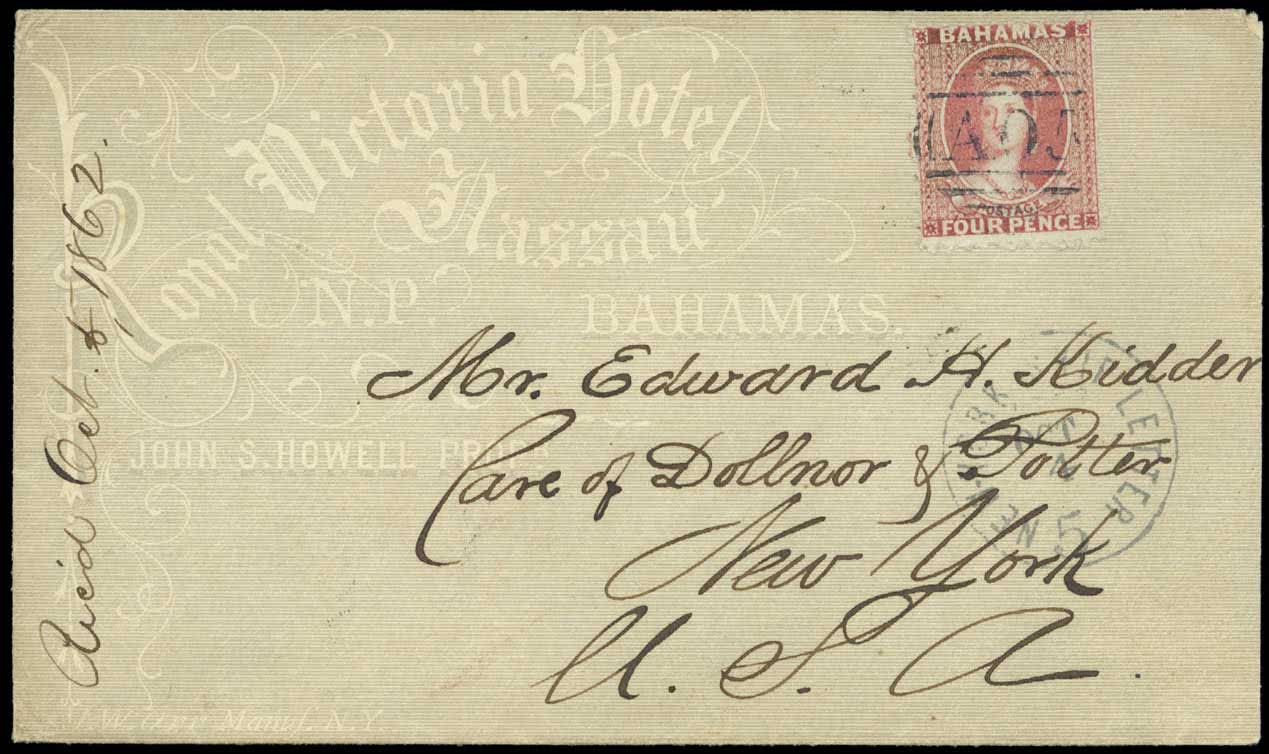 Royal Victoria Hotel
Nassau
N.P. BAHAMAS.
JOHN S. HOWELL PROP
BAHAMAS
A05
POSTAGE
FOUR PENCE
Mr. Edward H. Kidder
Care of Dollnor & Potter
New York
U. S. A.
Rec'd Oct. 5, 1862.
LETTER
OCT
5
Manuf. N.Y.